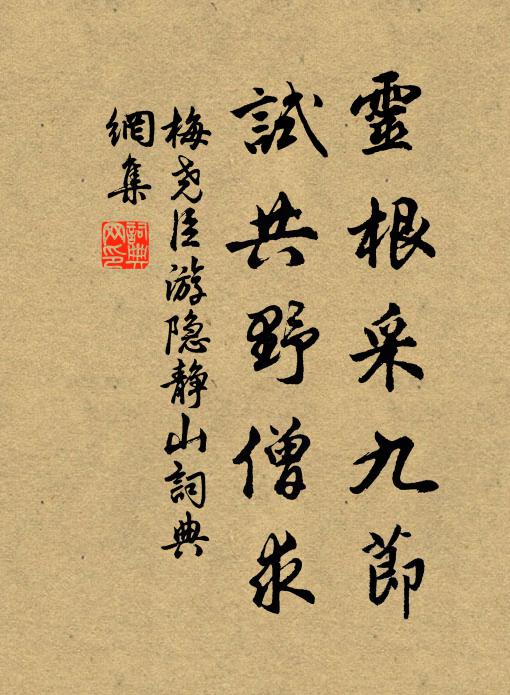 靈根采九節
試共野僧求
梅尧臣游隐静山詞典
網集
詞典网印